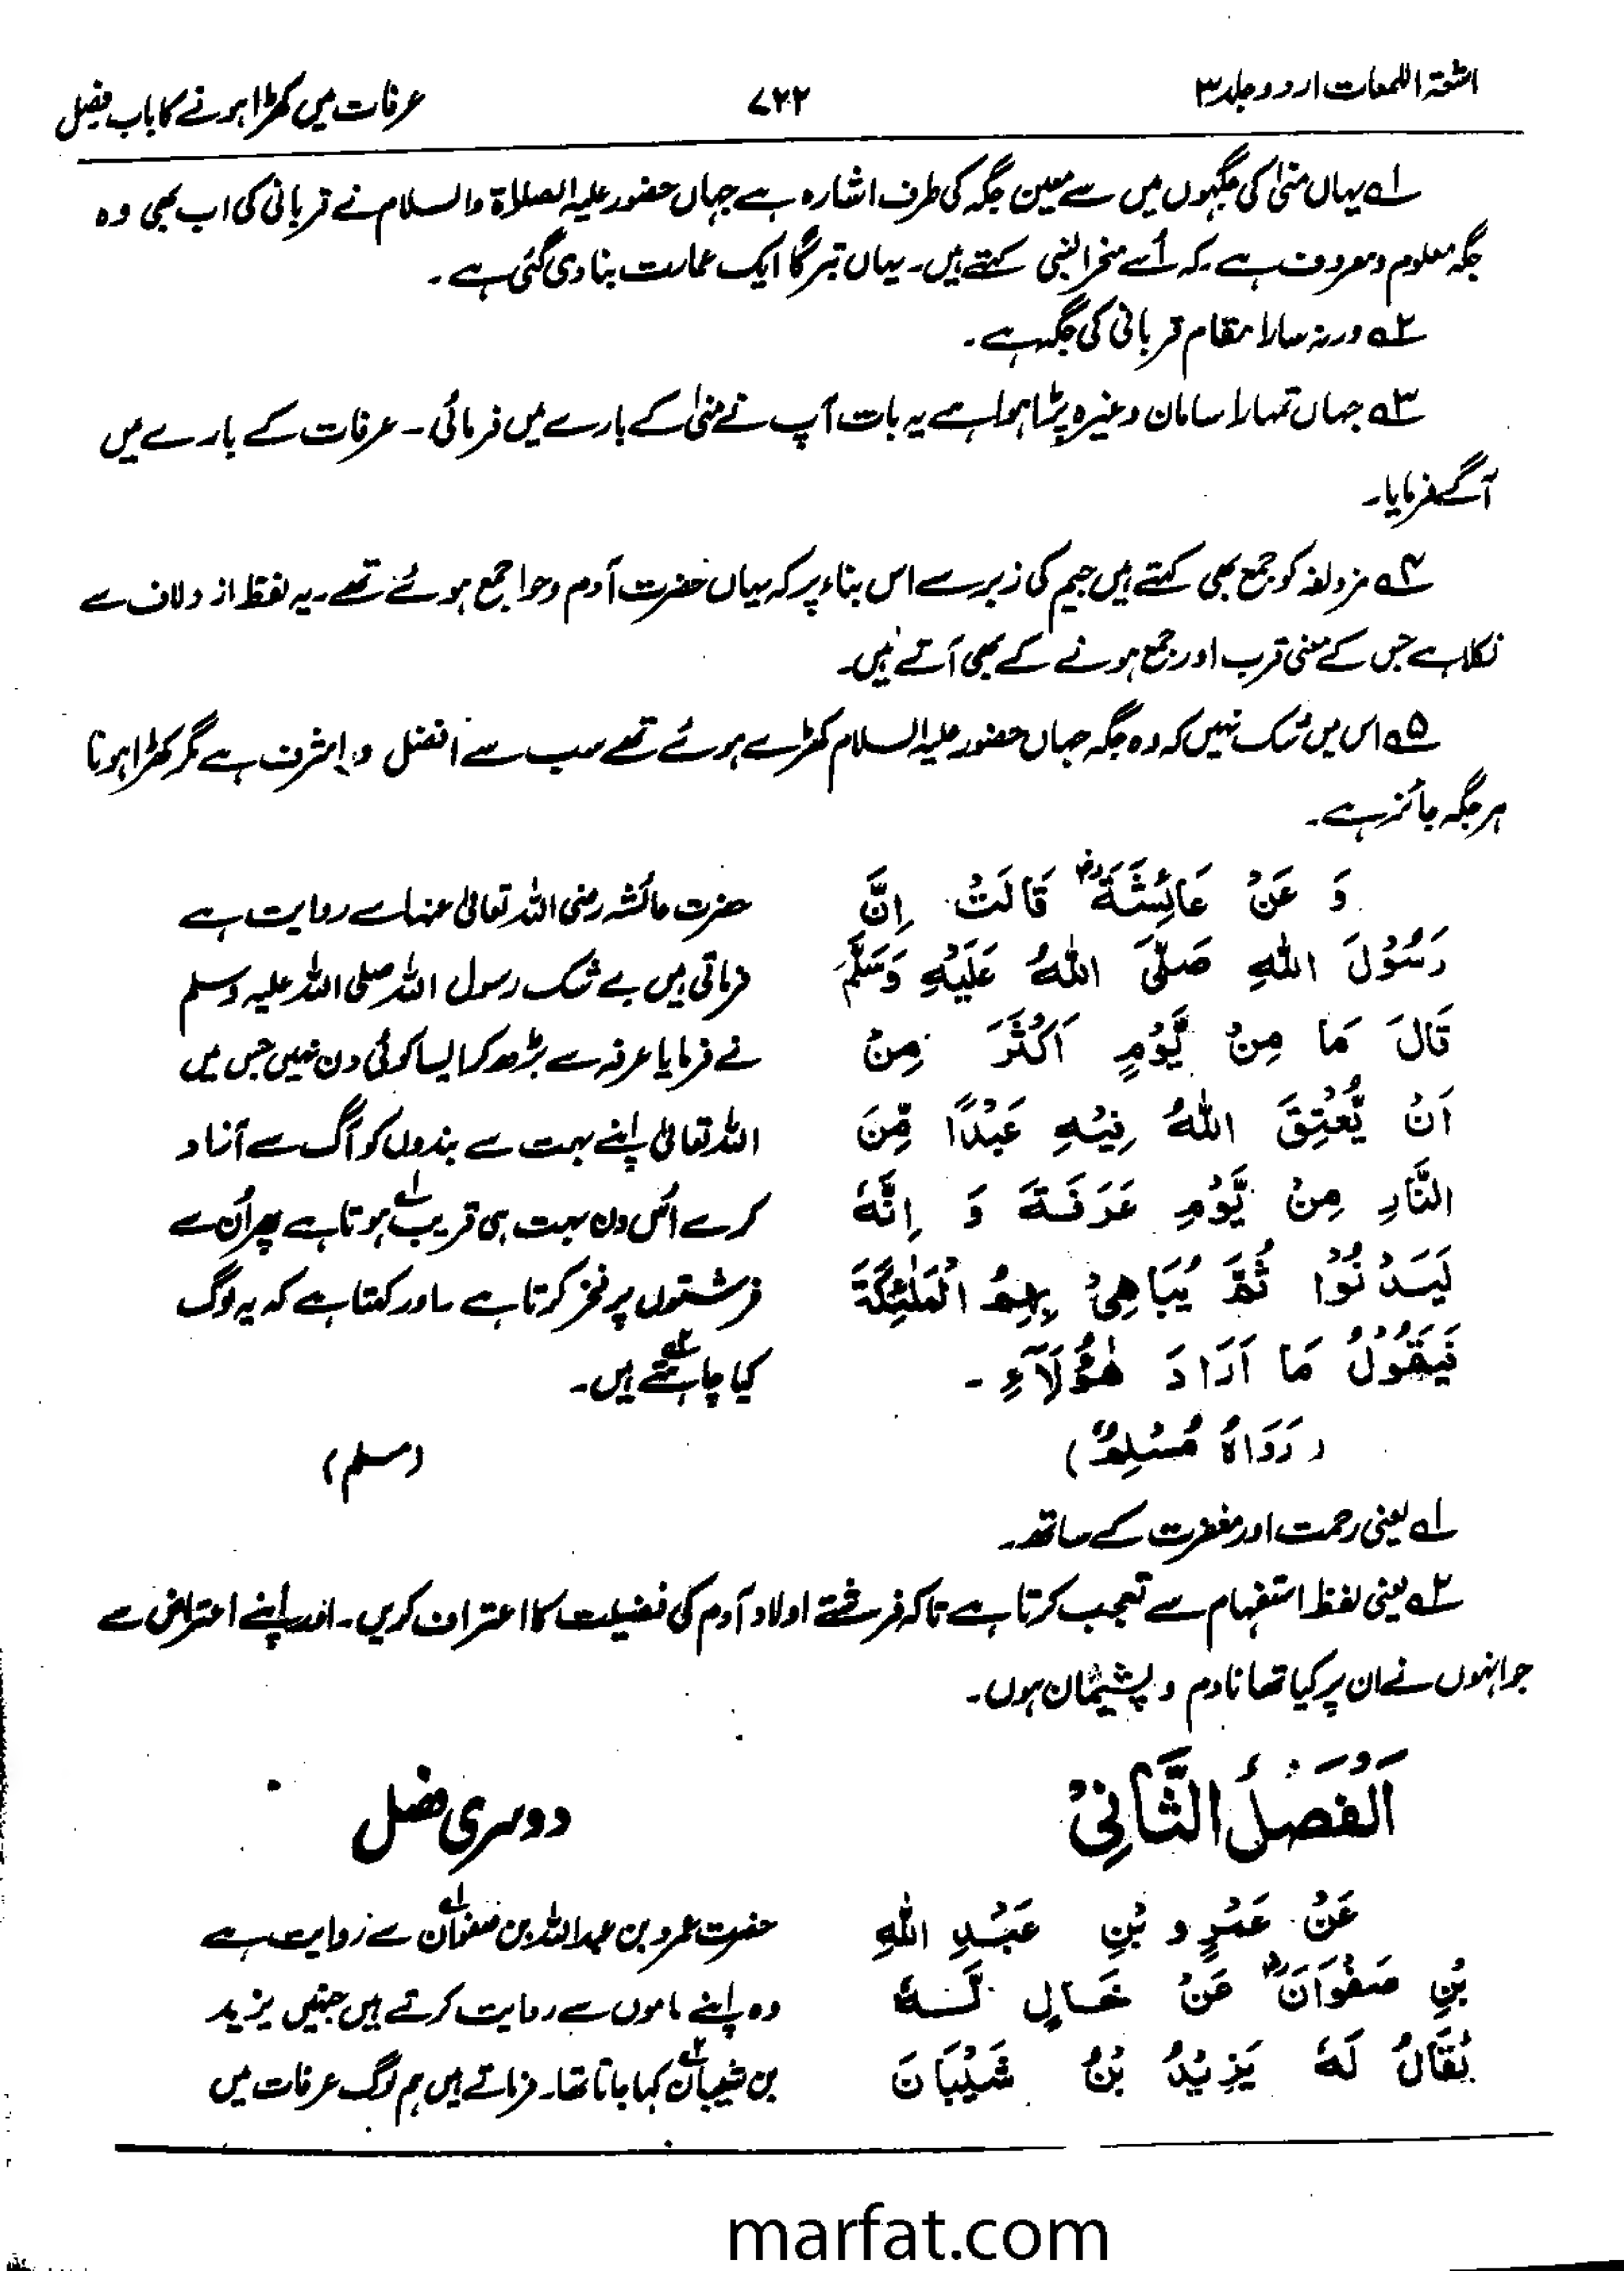 اشعۃ اللمعات اردو جلد ۳
۷۲۲
عرفات میں کھڑا ہونے کا باب فصل
۱؎ یہاں منیٰ کی جگہوں میں سے معین جگہ کی طرف اشارہ ہے جہاں حضور علیہ الصلاۃ والسلام نے قربانی کی اب بھی وہ
جگہ معلوم و معروف ہے کہ اُسے منحر النبی کہتے ہیں۔ یہاں تبرکاً ایک عمارت بنا دی گئی ہے۔
۲؎ ورنہ سارا مقام قربانی کی جگہ ہے۔
۳؎ جہاں تمہارا سامان وغیرہ پڑا ہوا ہے یہ بات آپ نے منیٰ کے بارے میں فرمائی۔ عرفات کے بارے میں
آگے فرمایا۔
۴؎ مزدلفہ کو جمع بھی کہتے ہیں جیم کی زبر سے اس بناء پر کہ یہاں حضرت آدم و حوا جمع ہوئے تھے۔ یہ لفظ ازدلاف سے
نکلا ہے جس کے معنی قرب اور جمع ہونے کے بھی آتے ہیں۔
۵؎ اس میں شک نہیں کہ وہ جگہ جہاں حضور علیہ السلام کھڑے ہوئے تھے سب سے افضل و اشرف ہے مگر کھڑا ہونا
ہر جگہ جائز ہے۔
وَ عَنْ عَائِشَةَ رض قَالَتْ اِنَّ
رَسُوْلَ اللهِ صَلَّى اللهُ عَلَيْهِ وَسَلَّمَ
قَالَ مَا مِنْ يَّوْمٍ اَكْثَرَ مِنْ
اَنْ يُّعْتِقَ اللهُ فِيْهِ عَبْدًا مِّنَ
النَّارِ مِنْ يَّوْمِ عَرَفَةَ وَ اِنَّهٗ
لَيَدْنُوْا ثُمَّ يُبَاهِيْ بِهِمُ الْمَلٰئِكَةَ
فَيَقُوْلُ مَا اَرَادَ هٰؤُلَآءِ ـ
(رَوَاهُ مُسْلِمٌ)
حضرت عائشہ رضی اللہ تعالیٰ عنہا سے روایت ہے
فرماتی ہیں بے شک رسول اللہ صلی اللہ علیہ وسلم
نے فرمایا عرفہ سے بڑھ کر ایسا کوئی دن نہیں جس میں
اللہ تعالیٰ اپنے بہت سے بندوں کو آگ سے آزاد
کرے اُس دن بہت ہی قریب۱؎ ہوتا ہے پھر اُن سے
فرشتوں پر فخر کرتا ہے۔ اور کہتا ہے کہ یہ لوگ
کیا چاہتے۲؎ ہیں۔
(مسلم)
۱؎ یعنی رحمت اور مغفرت کے ساتھ۔
۲؎ یعنی لفظ استفہام سے تعجب کرتا ہے تاکہ فرشتے اولاد آدم کی فضیلت کا اعتراف کریں۔ اور اپنے اعتراض سے
جو انہوں نے ان پر کیا تھا نادم و پشیمان ہوں۔
اَلْفَصْلُ الثَّانِيْ
دوسری فصل
عَنْ عَمْرٍو بْنِ عَبْدِ اللهِ
بْنِ صَفْوَانَ رض عَنْ خَالٍ لَّهٗ
يُقَالُ لَهٗ يَزِيْدُ بْنُ شَيْبَانَ
حضرت عمرو بن عبداللہ بن صفوان۱؎ سے روایت ہے
وہ اپنے ماموں سے روایت کرتے ہیں جنہیں یزید
بن شیبان۲؎ کہا جاتا تھا۔ فرماتے ہیں ہم لوگ عرفات میں
marfat.com